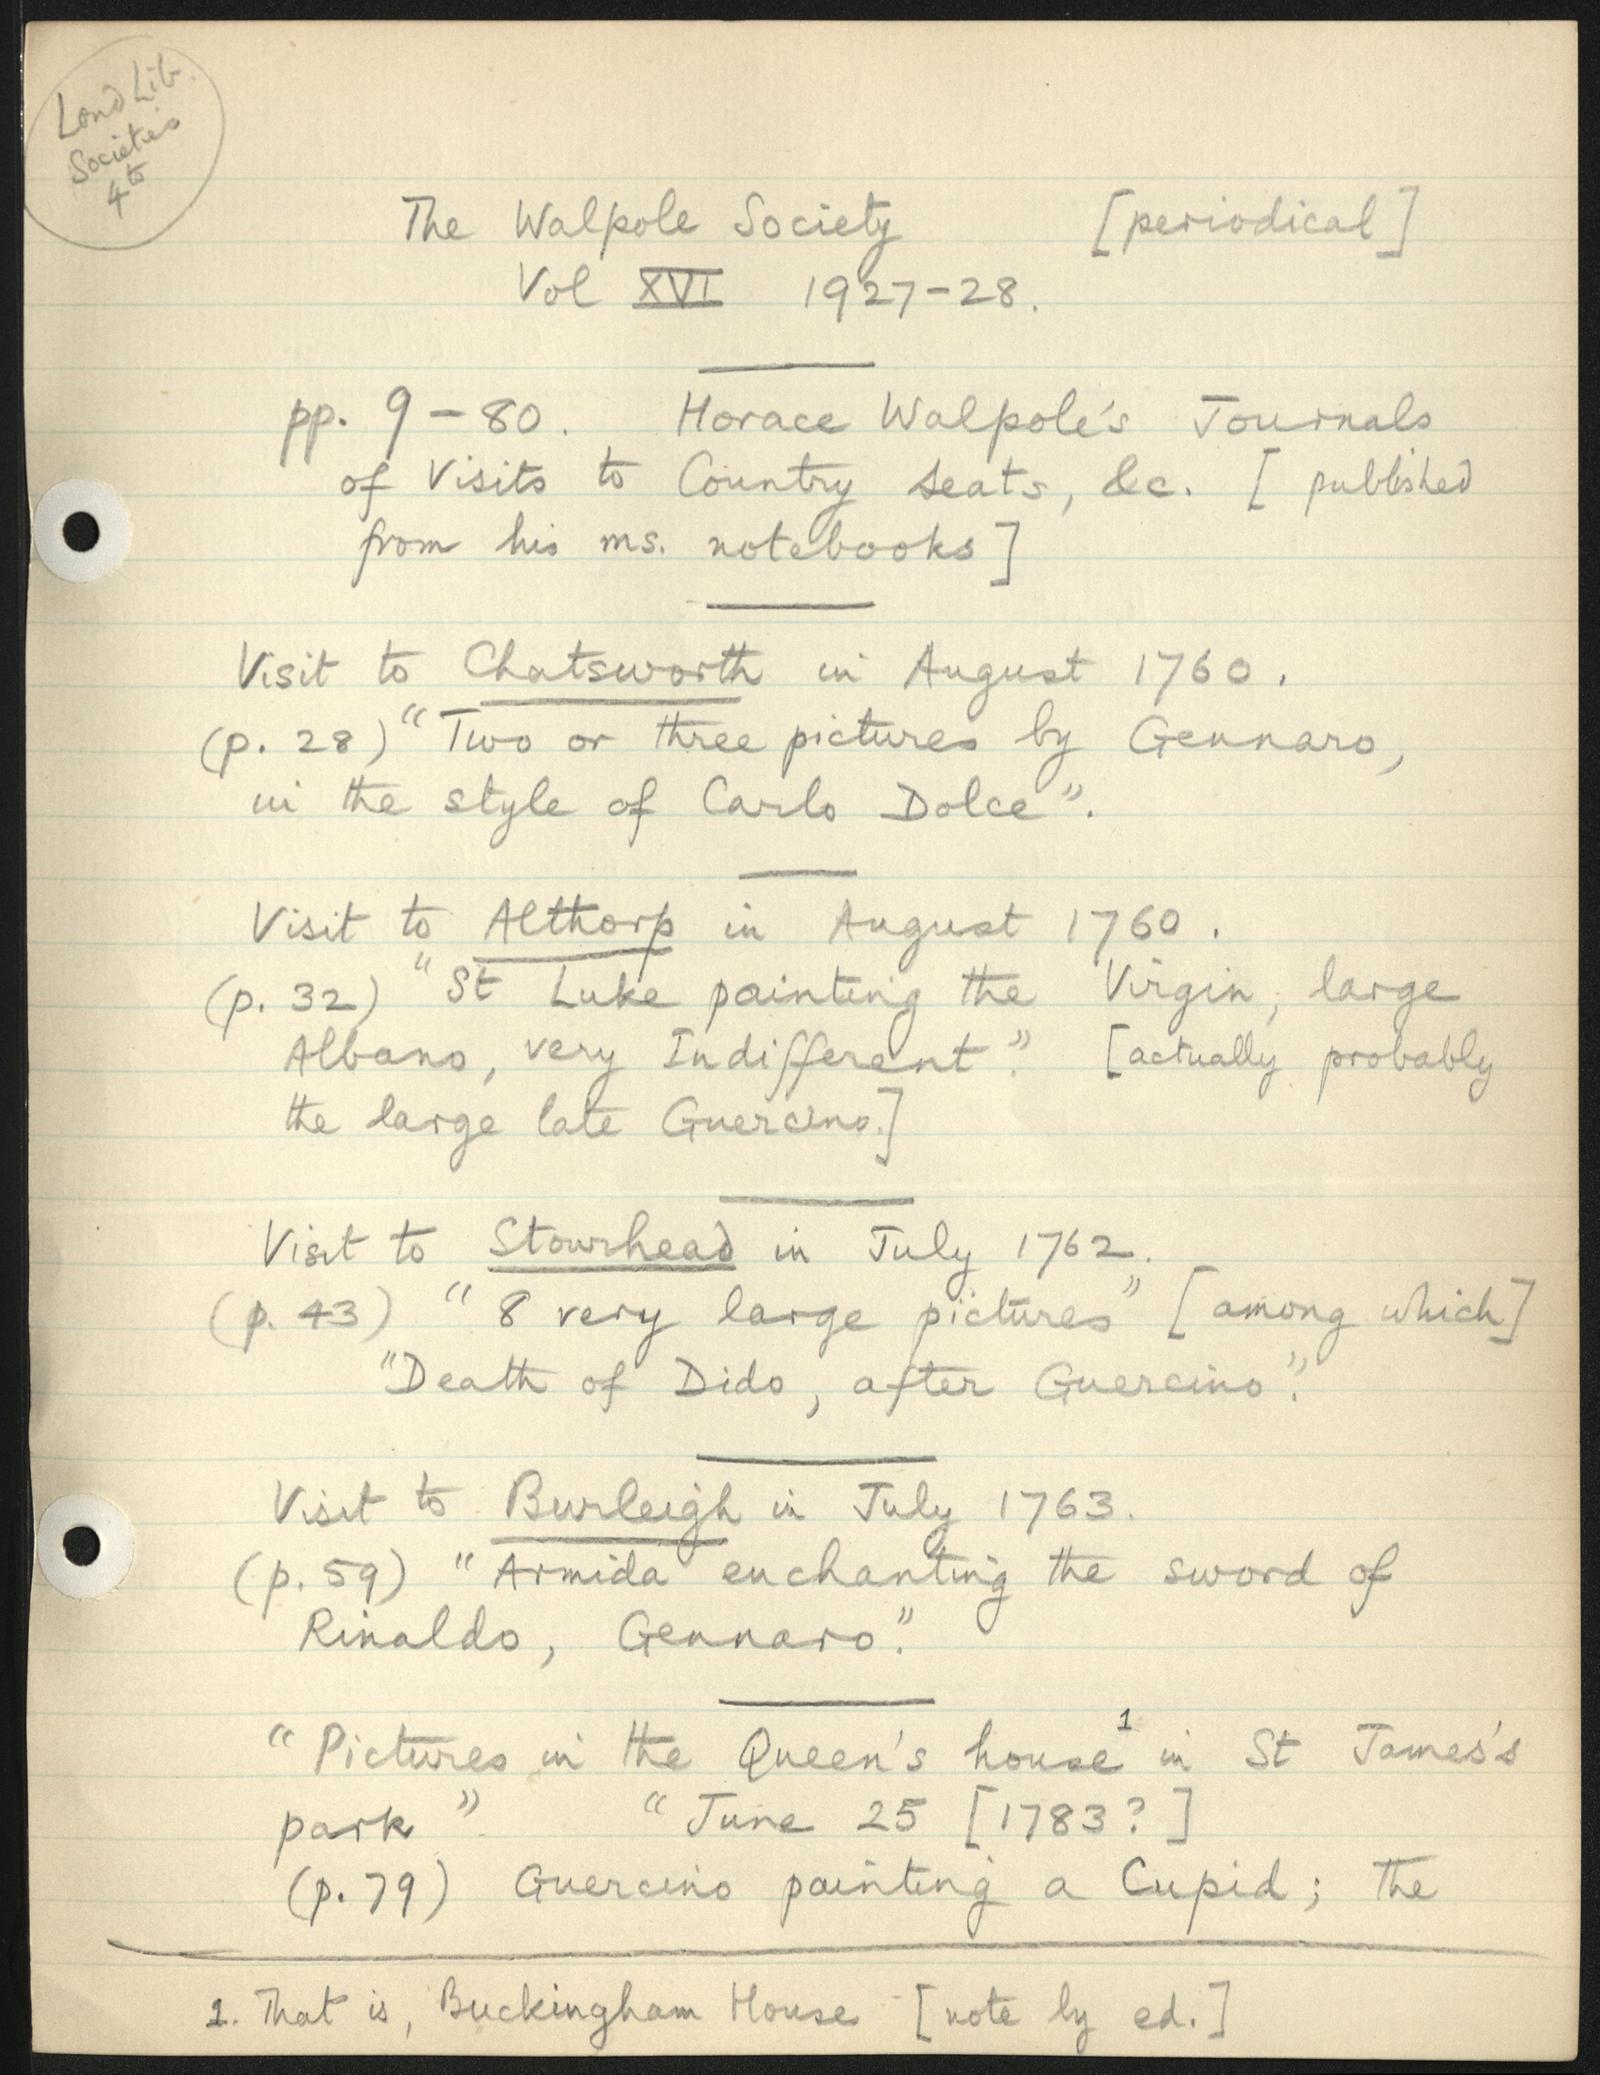 Lond Lib.
Societies
4to
The Walpole Society [periodical]
Vol XVI 1927-28.
pp. 9-80. Horace Walpole's Journals
of Visits to Country Seats, &c. [published
from his ms. notebooks]
Visit to Chatsworth in August 1760.
(p. 28) "Two or three pictures by Gennaro,
in the style of Carlo Dolce".
Visit to Althorp in August 1760.
(p. 32) "St Luke painting the Virgin, large
Albano, very Indifferent." [actually probably
the large late Guercino.]
Visit to Stourhead in July 1762.
(p. 43) "8 very large pictures" [among which]
"Death of Dido, after Guercino".
Visit to Burleigh in July 1763.
(p. 59) "Armida enchanting the sword of
Rinaldo, Gennaro."
"Pictures in the Queen's house¹ in St James's
park" "June 25 [1783?]
(p. 79) Guercino painting a Cupid; the
1. That is, Buckingham House [note by ed.]